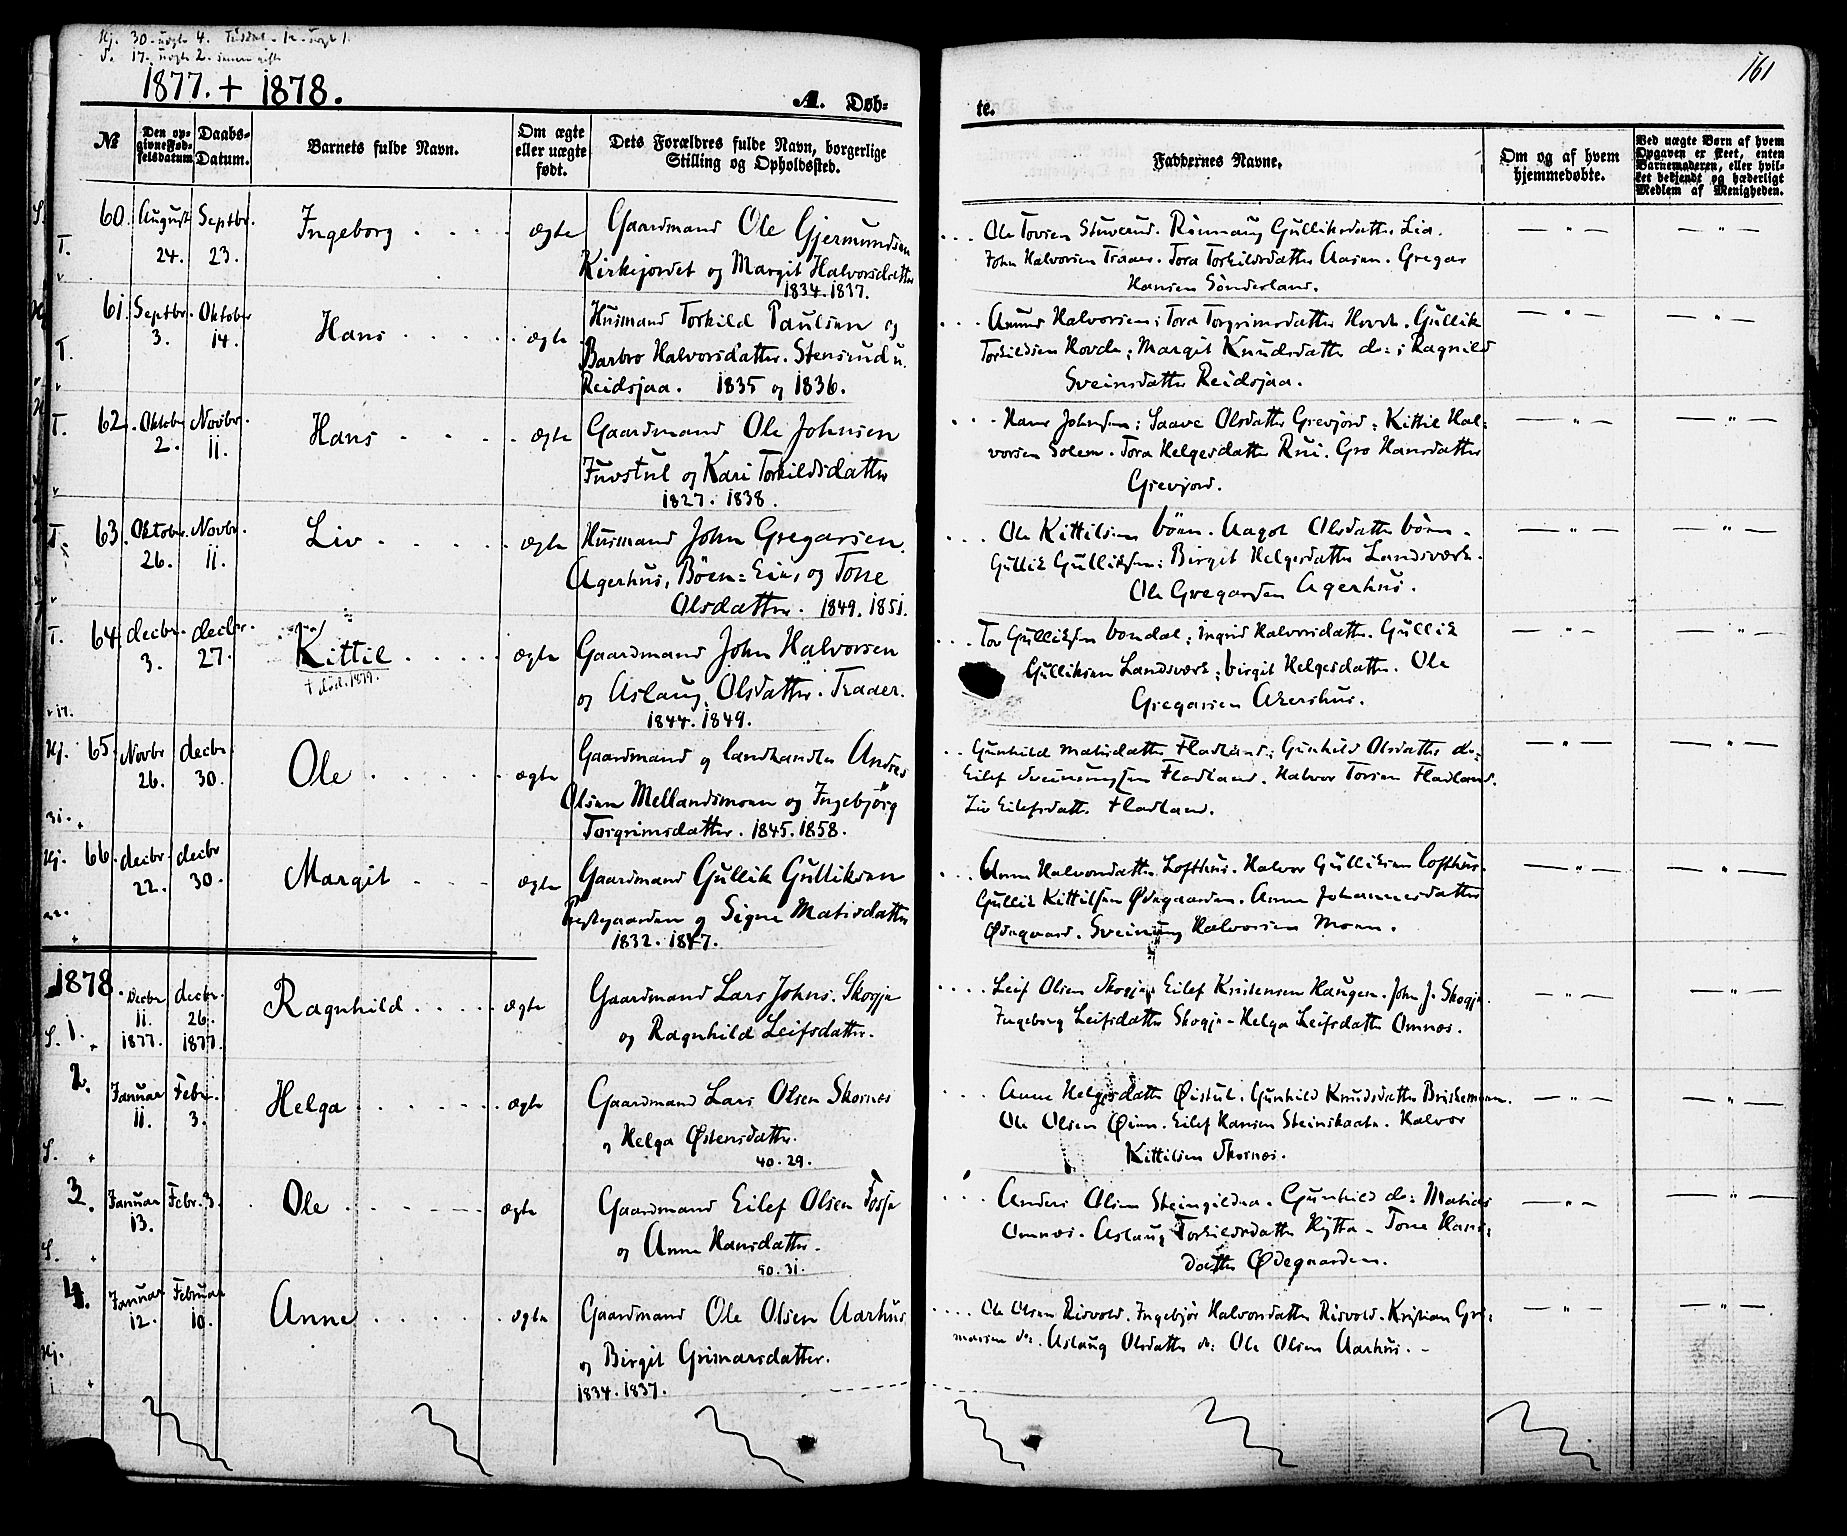 Hj. 30. uægte 4. Tudal. 12. uægte 1.
S. 17. uægte 2.
1877. + 1878.
161
A. Døb-
te.
№
Den op-
givne Fød-
selsdatum
Daabs-
Datum.
Barnets fulde Navn.
Om ægte
eller uægte
født.
Dets Forældres fulde Navn, borgerlige
Stilling og Opholdssted.
Faddernes Navne.
Om og af hvem
hjemmedøbte.
Ved uægte Børn af hvem
Opgaven er skeet, enten
Barnemoderen, eller hvil-
ket bekjendt og hæderligt
Medlem af Menigheden.
S. T. 60. August 24. Septbr. 23. Ingeborg ægte
Gaardmand Ole Gjermundsen
Kirkejordet og Margit Halvorsdatter
1834. 1837.
Ole Tovsen Stuverud. Rønnaug Gulliksdatter Lia.
John Halvorsen Traaer. Tora Torkildsdatter Aasen. Gregar
Hansen Sønderland.
T. 61. Septbr. 3. Oktober 14. Hans ægte
Husmand Torkild Paulsen og
Barbro Halvorsdatter. Stensrud u.
Reidsjaa. 1835 og 1836.
Amund Halvorsen; Tora Torgrimsdatter Hovde. Gullik
Torkildsen Hovde; Margit Knudsdatter do:; Ragnild
Sveinsdatter Reidsjaa.
T. 62. Oktober 2. Novbr. 11. Hans ægte
Gaardmand Ole Johnsen
Juvstul og Kari Torkildsdatter
1827. 1838.
Hans Johnsen; Saave Olsdatter Grevjord; Kittil Hal-
vorsen Solem. Tora Helgesdatter Rui. Gro Hansdatter
Grevjord.
T. 63. Oktober 26. Novbr. 11. Liv ægte
Husmand John Gregarsen.
Agerhus, Böen: Eie, og Tone
Olsdatter. 1849. 1851.
Ole Kittilsen böen. Aagot Olsdatter böen.
Gullik Gulliksen; Birgit Helgesdatter Landsværk.
Ole Gregarsen Agerhus.
T. 64. decbr. 3. decbr. 27. Kittil ægte
† död. 1879.
Gaardmand John Halvorsen
og Aslaug Olsdatter. Traaer.
1844. 1849.
Tov Gulliksen bondal; Ingrid Halvorsdatter. Gullik
Gulliksen Landsværk; birgit Helgesdatter. Ole
Gregarsen Akershus.
Hj. 65. Novbr 26. decbr. 30. Ole ægte
Gaardmand og landhandler Andres
Olsen Mellandsmoen og Ingebjörg
Torgrimsdatter. 1845. 1858.
Gunhild Matisdatter Fladland; Gunhild Olsdatter do:
Eilef Sveinungsen Fladland. Halvor Torsen Fladland.
Liv Eilefsdatter Fladland.
Hj. 66. decbr. 22. decbr 30. Margit ægte
Gaardmand Gullik Gulliksen
Prestegaarden og Signe Matisdatter
1832. 1847.
Anne Halvorsdatter Lofthus. Halvor Gulliksen lofthus.
Gullik Kittilsen Ødegaarden. Anne Johannesdatter
Ødegaard. Sveinung Halvorsen Moen.
1878
S. 1. Decbr 11. 1877. decbr. 26. 1877. Ragnhild ægte
Gaardmand Lars Johns. Skogje
og Ragnhild Leifsdatter.
Leif Olsen Skogje. Eilef Kristensen Haugen. John J. Skogje.
Ingeborg Leifsdatter Skogje - Helga Leifsdatter Omnes.
S. 2. Januar 11. Febr. 3. Helga ægte
Gaardmand Lars Olsen Skornes
og Helga Østensdatter.
40. 29.
Anne Helgesdatter Øistul. Gunhild Knudsdatter Briskemyren.
Ole Olsen Øinn. Eilef Hansen Steinskaatn. Halvor
Kittilsen Skornes.
S. 3. Januar 13. Febr. 3. Ole ægte
Gaardmand Eilef Olsen Fosje
og Anne Hansdatter.
50. 31.
Anders Olsen Steingildra. Gunhild do: Matias
Omnes. Aslaug Torkildsdatter Hytta - Tone Hans-
datter Ødegaarden.
Hj. 4. Januar 12. Februar 10. Anne ægte
Gaardmand Ole Olsen Aarhus
og Birgit Grimarsdatter.
1834. 1837.
Ole Olsen Risvold. Ingebjør Halvorsdatter Risvold. Kristian Gri-
marsen do: Aslaug Olsdatter do: Ole Olsen Aarhus.